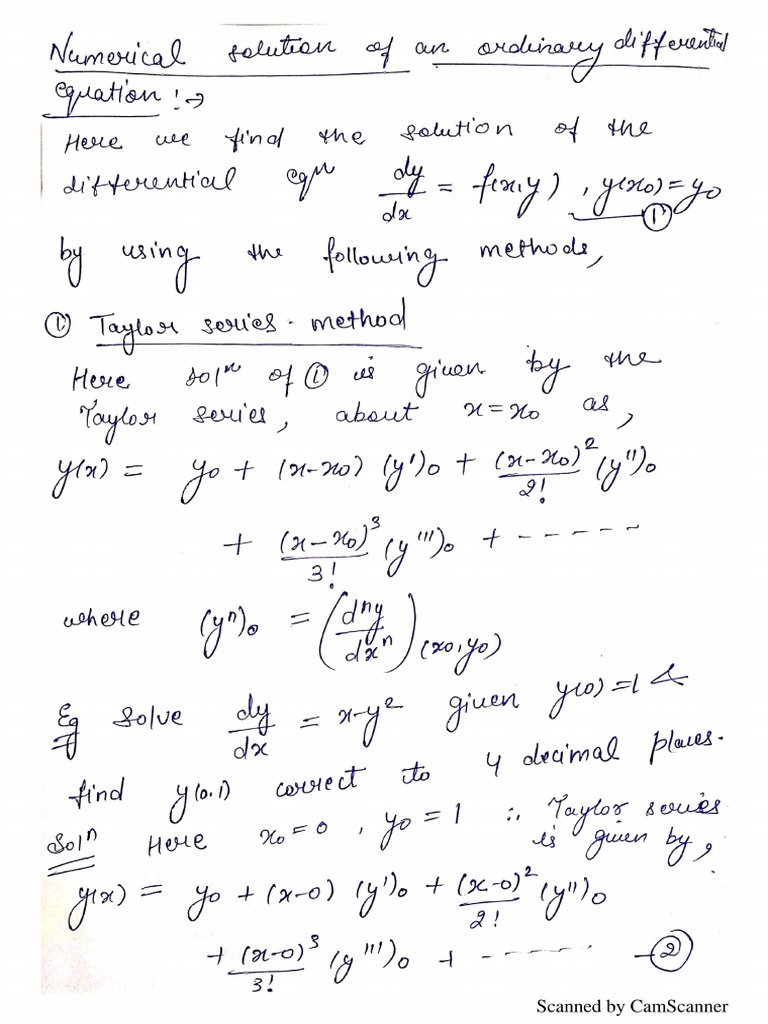 Numerical solution of an ordinary differential
equation :→
Here we find the solution of the
differential eqn dy/dx = f(x,y) , y(x0) = y0 —①
by using the following methods,
① Taylor series - method
Here soln of ① is given by the
Taylor series, about x = x0 as,
y(x) = y0 + (x-x0) (y')0 + (x-x0)²/2! (y'')0
+ (x-x0)³/3! (y''')0 + -----
where (yⁿ)0 = (dⁿy/dxⁿ)(x0,y0)
Eg Solve dy/dx = x-y² given y(0) = 1 &
find y(0.1) correct to 4 decimal places.
Soln Here x0 = 0 , y0 = 1 ∴ Taylor series
is given by,
y(x) = y0 + (x-0) (y')0 + (x-0)²/2! (y'')0
+ (x-0)³/3! (y''')0 + ------ —②
Scanned by CamScanner